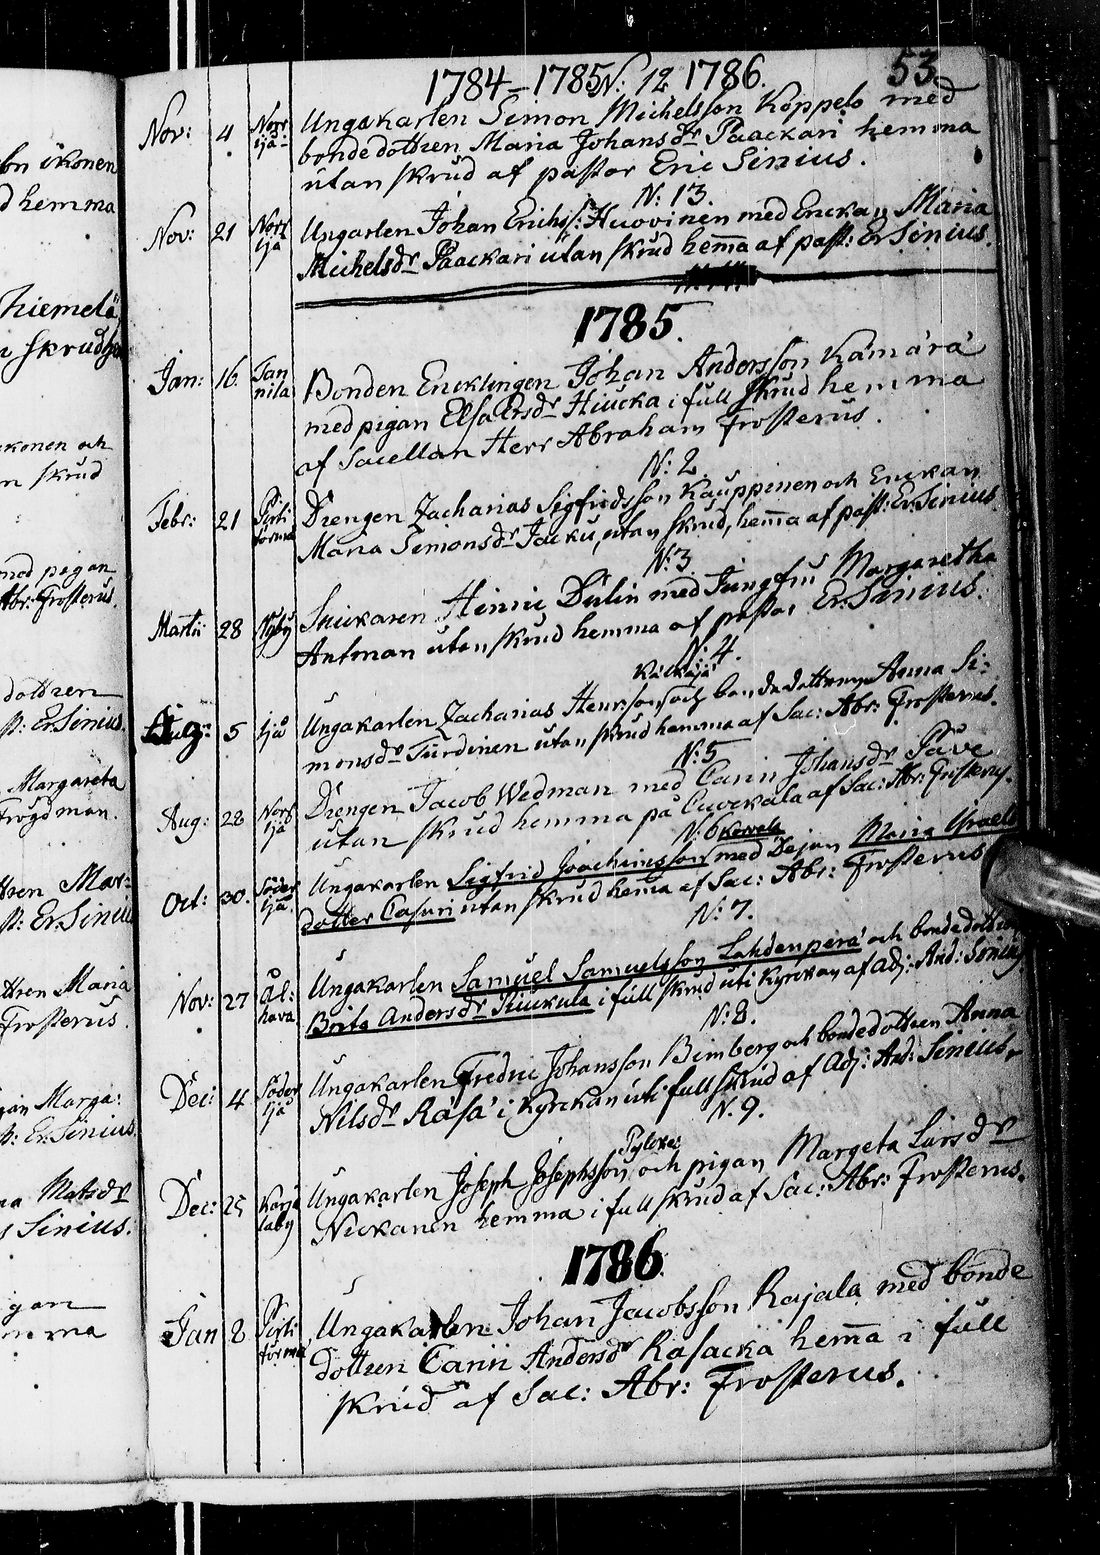 1784-1785 N: 12 1786. 53.
Nov: 4 Norr Ijå Ungakarlen Simon Michelsson Koppelo med
bondedottren Maria Johansdr Paackari hemma
utan skrud af pastor Eric Sinius.
N: 13.
Nov: 21 Norr Ijå Ungarlen Johan Erichss: Huovinen med Enckan Maria
Michelsdr Paackari utan skrud hem̄a af past: Er Sinius.
1785.
Jan: 16. Jannila Bonden Encklingen Johan Andersson Kämärä
med pigan Elsa Ersdr Hiucka i full skrud hemma
af Sacellan Herr Abraham Frosterus.
N: 2
Febr: 21 Pirti torma Drengen Zacharias Sigfridsson Kauppinen och Enckan
Maria Simonsdr Jacku, utan skrud, hem̄a af past: Er: Sinius
N: 3
Martii 28 Nyby Snickaren Hinric Dulin med Jungfru Margaretha
Antman utan skrud hemma af pastor Er: Sinius.
N: 4.
Kälkäjä
Aug: 5 Ijå Ungakarlen Zacharias Henrsson och bondedottren Anna Si:
monsdr Turdinen utan skrud hemma af Sac: Abr: Frosterus.
N: 5
Aug: 28 Norr Ijå Drengen Jacob Wedman med Carin Johansdr Päve
utan skrud hemma på af Sac: Abr: Frosterus.
N: 6 Kewela
Oct: 30. Söder Ijå Ungakarlen Sigfrid Joachimsson med Dejan Maria Israels
dotter Casuri utan skrud hem̄a af Sac: Abr: Frosterus
N: 7.
Nov: 27 Ål: hava Ungakarlen Samuel Samuelsson Lahdenperä och bondedottren
Brita Andersdr Kiuckula i full skrud uti kyrckan af Adj: And: Sinius
N: 8.
Dec: 4 Söder Ijå Ungakarlen Fredric Johansson Bimberg och bondedottren Anna
Nilsdr Rasa i kyrckan uti full skrud af Adj: And: Sinius.
N: 9.
Dec: 25 Karja laby Ungakarlen Joseph Josephsson och pigan Margeta Larsdr
Nickanen hemma i full skrud af Sac: Abr: Frosterus.
1786
Jan 8 Pirti torma Ungakarlen Johan Jacobsson Rajala med bonde
dottren Carin Andersdr Rasacka hem̄a i full
skrud af Sac: Abr: Frosterus.